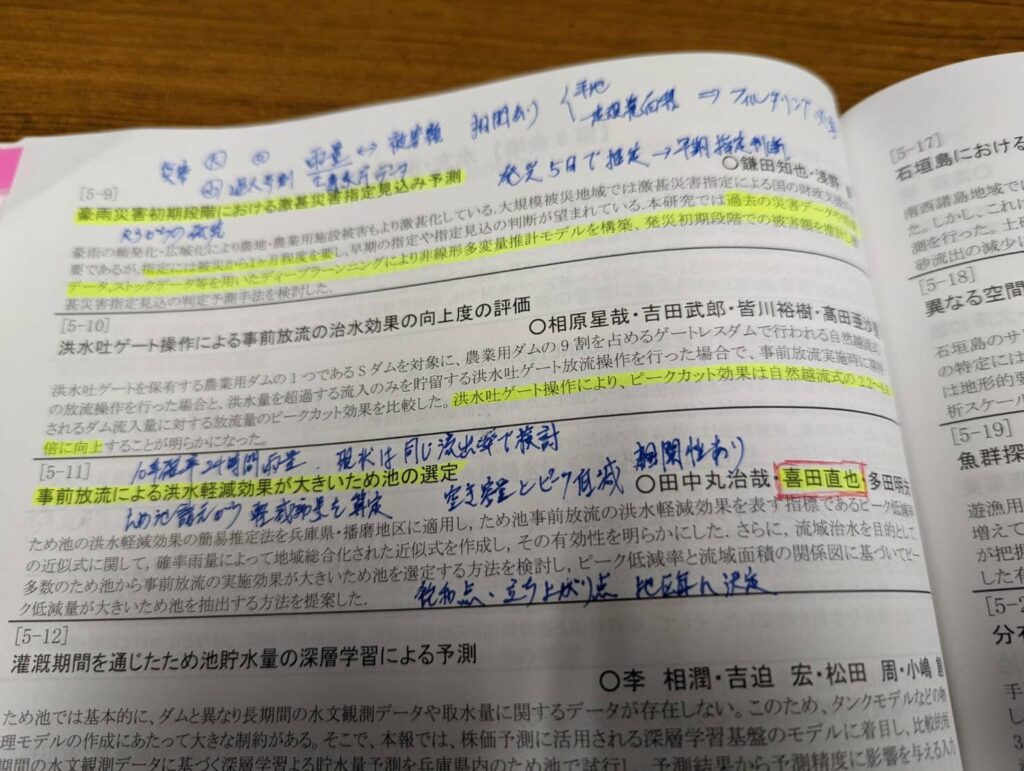 相関あり
平地
雨量 ↔ 被害額
発災5日で推定→早期指定判断
[5-9]
○鎌田知也・浅野
豪雨災害初期段階における激甚災害指定見込み予測
豪雨の頻発化・広域化により農地・農業用施設被害もより激甚化している.大規模被災地域では激甚災害指定による国の財政支援
要であるが,指定には被災から1ヶ月程度を要し,早期の指定や指定見込の判断が望まれている.本研究では過去の災害データや
データ,ストックデータ等を用いたディープラーンニングにより非線形多変量推計モデルを構築、発災初期段階での被害額を推計し
甚災害指定見込の判定予測手法を検討した.
[5-10]
洪水吐ゲート操作による事前放流の治水効果の向上度の評価
○相原星哉・吉田武郎・皆川裕樹・髙田亜沙里
洪水吐ゲートを保有する農業用ダムの1つであるSダムを対象に、農業用ダムの9割を占めるゲートレスダムで行われる自然越流式
の放流操作を行った場合と、洪水量を超過する流入のみを貯留する洪水吐ゲート放流操作を行った場合で、事前放流実施時に
されるダム流入量に対する放流量のピークカット効果を比較した。洪水吐ゲート操作により、ピークカット効果は自然越流式の2.2～
倍に向上することが明らかになった。
現状は同じ流出率で検討
[5-11]
相関性あり
事前放流による洪水軽減効果が大きいため池の選定
空き容量とピーク低減
○田中丸治哉・喜田直也・多田明夫
ため池の洪水軽減効果の簡易推定法を兵庫県・播磨地区に適用し,ため池事前放流の洪水軽減効果を表す指標であるピーク低減率
の近似式に関して,確率雨量によって地域総合化された近似式を作成し,その有効性を明らかにした.さらに,流域治水を目的として
多数のため池から事前放流の実施効果が大きいため池を選定する方法を検討し,ピーク低減率と流域面積の関係図に基づいてピー
ク低減量が大きいため池を抽出する方法を提案した.
飽和点・立ち上がり点
決定
[5-12]
灌漑期間を通じたため池貯水量の深層学習による予測
○李 相潤・吉迫 宏・松田 周・小嶋
ため池では基本的に、ダムと異なり長期間の水文観測データや取水量に関するデータが存在しない。このため、タンクモデルなどの
理モデルの作成にあたって大きな制約がある。そこで、本報では、株価予測に活用される深層学習基盤のモデルに着目し、比較的
期間の水文観測データに基づく深層学習よる貯水量予測を兵庫県内のため池で試行し、予測結果から予測精度に影響を与える入力
[5-17]
石垣島における
南西諸島地域では
た。しかし、これに
測を行った。土砂
砂流出の減少に
[5-18]
異なる空間
石垣島のサ
の特定には
は地形的要
析スケール
[5-19]
魚群探
遊漁用
増えて
が把握
した有
分布